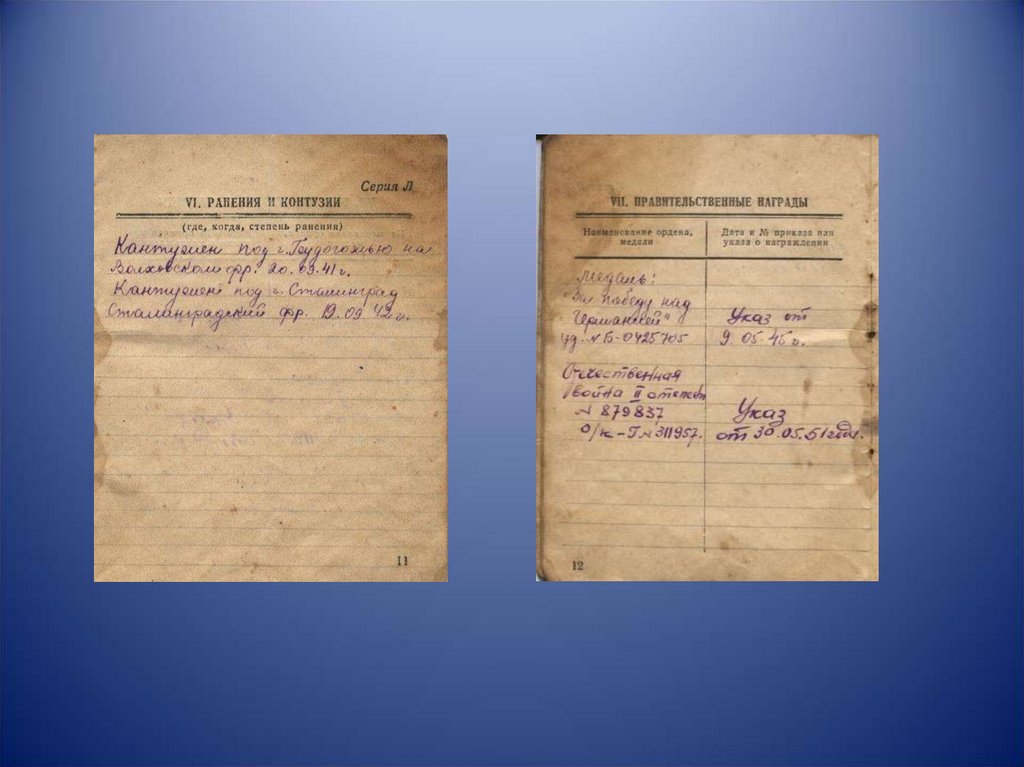 Серия Л
VI. РАНЕНИЯ И КОНТУЗИИ
(где, когда, степень ранения)
Кантузиен под г. на
Волховском фр. 20.09.41 г.
Кантузиен под г. Сталинград
Сталинградский фр. 19.09.42 г.
11
VII. ПРАВИТЕЛЬСТВЕННЫЕ НАГРАДЫ
Наименование ордена, медали
Дата и № приказа или указа о награждении
Медаль:
"За победу над
Германией" Указ от
уд. № Б-0425705 9.05.45 г.
Отечественная
война II степен
№ 879837, Указ
о/к-Г № 311957. от 30.05.51 года.
12